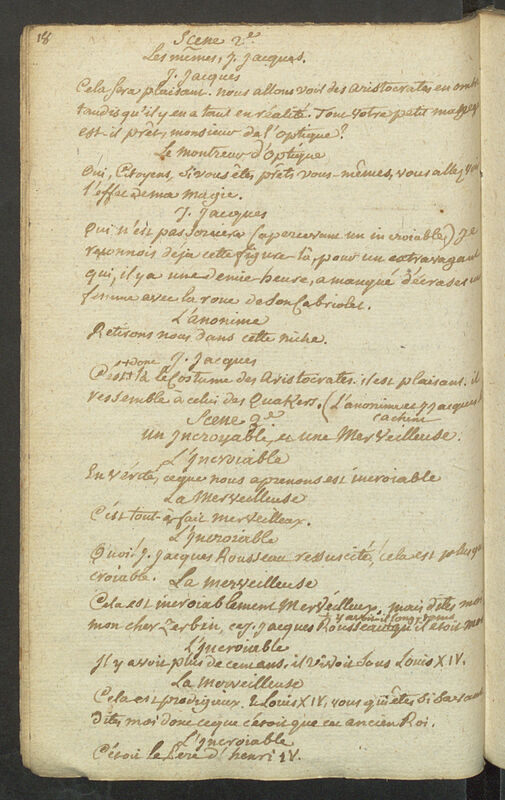 18
Scene 2e
Les mêmes, J. Jacques.
J. Jacques
Cela sera plaisant. nous allons voir des aristocrates en omb
tandis qu'il y en a tant en réalité. Tout votre petit
est-il prêt, monsieur de l'optique?
Le montreur d'Optique
Oui, Citoyens, si vous êtes prêts vous-mêmes, vous allez
l'effet de ma magie.
J. Jacques
Oui, n'est pas sorcier (apercevant un incroiable) Je
reconnois déja cette figure-là, pour un extravagant
qui, il y a une demie heure, a manqué d'écraser
femme avec la roue de son Cabriolet.
L'anonime
Retirons nous dans cette niche.
J. Jacques
C'est donc là le Costume des Aristocrates. il est plaisant. il
ressemble à celui des Quakers. (L'anonime et J Jacques
cachent
Scene 3e
un Incroyable, et une Merveilleuse.
L'Incroiable
En vérité, ce que nous aprenons est incroiable
La Merveilleuse
C'est tout-à-fait merveilleux.
L'Incroiable
Quoi! J. Jacques Rousseau ressuscité, cela est plus qu
croiable.
La Merveilleuse
Cela est incroiablement Merveilleux. mais dites moi
mon cher Zerbin, ce J. Jacques Rousseau, y avoit-il longtems qu'il etoit mort
L'Incroiable
Il y avoit plus de cent ans. il vivoit sous Louis XIV.
La Merveilleuse
Cela est prodigieux. & Louis XIV, vous qui êtes si savant
Dites moi donc ce que c'étoit que cet ancien Roi.
L'Incroiable
C'étoit le Pere d'henri IV.